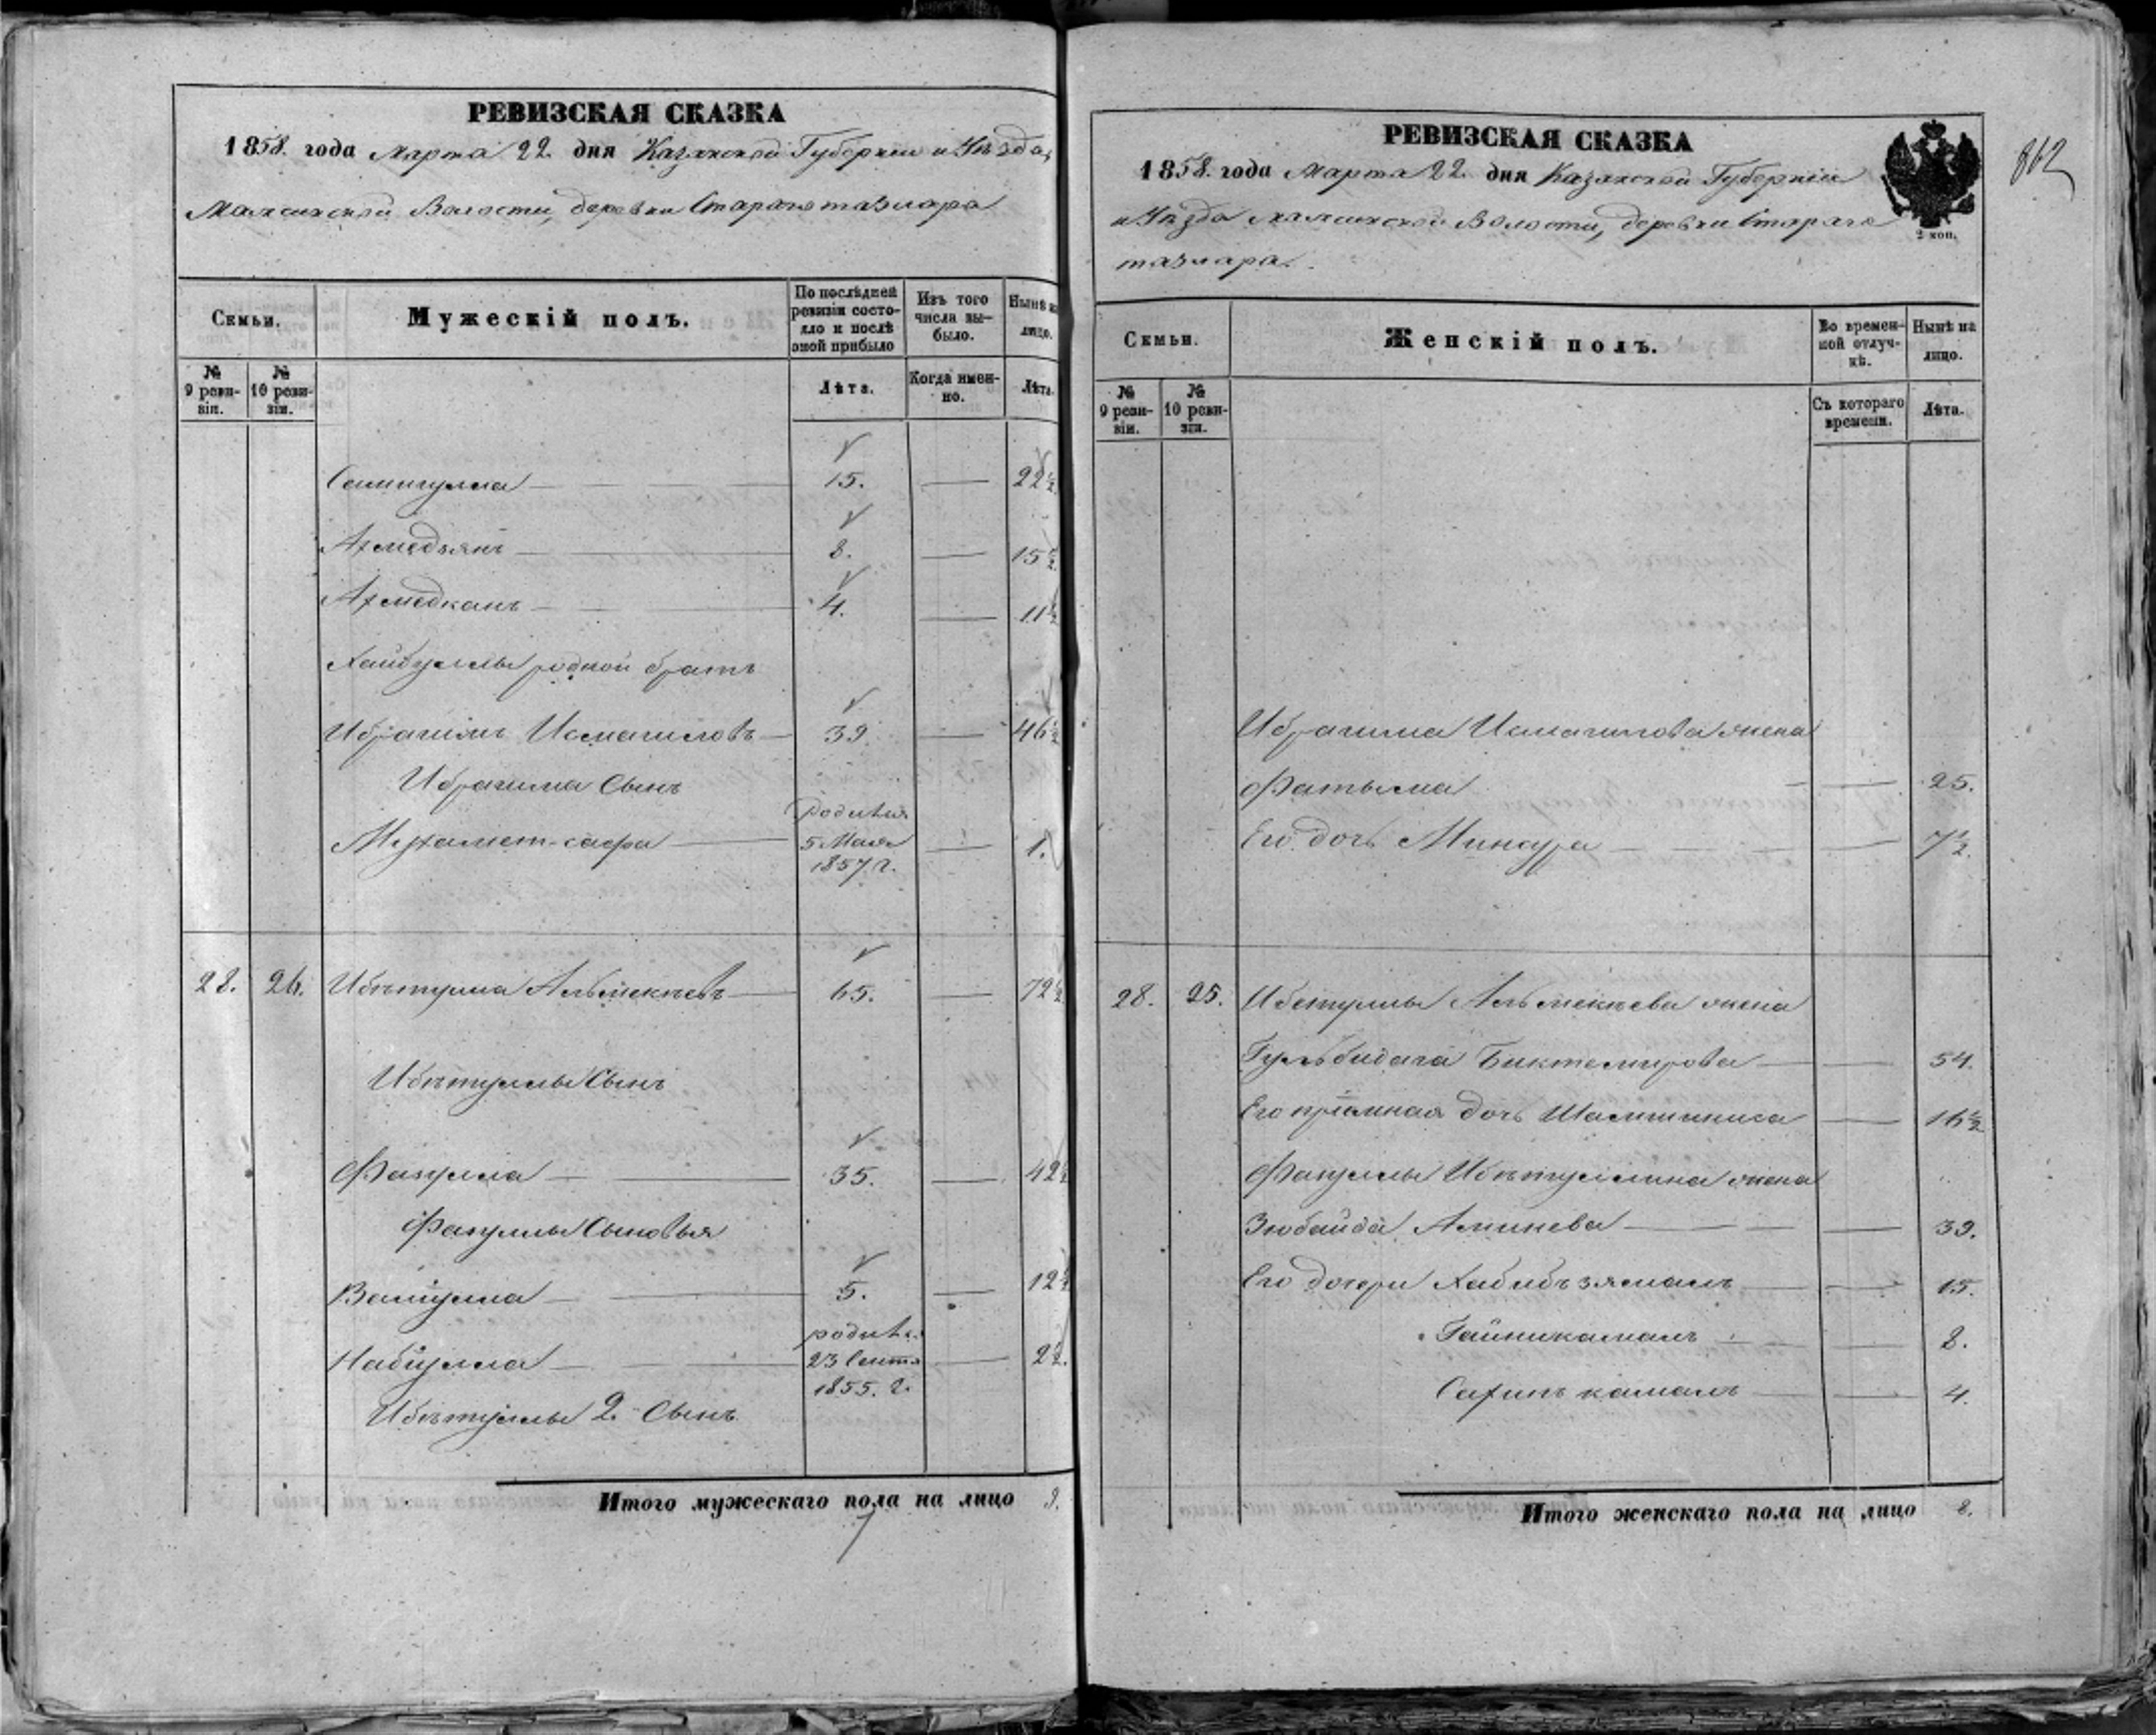 РЕВИЗСКАЯ СКАЗКА
1858. года Марта 22. дня Казанской Губернии и Уѣзда,
Волости, деревни Стараго тазлара
Семьи.
Мужескій полъ.
По послѣдней ревизіи состояло и послѣ оной прибыло
Изъ того числа выбыло.
Нынѣ на лицо.
№ 9 ревизіи.
№ 10 ревизіи.
Лѣта.
Когда именно.
Лѣта.
Самигулла 15. 22½
Ахмедзянъ 8. 15½
Ахмедканъ 4. 11½
Хайбуллы родной братъ
Ибрагимъ Исмагиловъ 39 46½
Ибрагима сынъ
Мухамет-сафа родился 5 Мая 1857 г. 1.
28. 26. Ибетулла Альмекѣевъ 65. 72½
Ибетуллы сынъ
Фазулла 35. 42½
Фазуллы сыновья
Валиулла 5. 12½
Набиулла родился 23 Сентя 1855. г. 2½.
Ибетуллы 2 сынъ
Итого мужескаго пола на лицо 9.
РЕВИЗСКАЯ СКАЗКА
1858. года Марта 22. дня Казанской Губерніи
и Уѣзда Волости, деревни Стараго
тазлара.
2 коп.
862
Семьи.
Женскій полъ.
Во временной отлучкѣ.
Нынѣ на лицо.
№ 9 ревизіи.
№ 10 ревизіи.
Съ котораго времени.
Лѣта.
Ибрагима Исмагилова жена
Фатыма 25.
Его дочь Минсура 7½.
28. 25. Ибетуллы Альмекѣева жена
Гульбидага Биктемирова 54.
Его пріемная дочь 16½
Фазуллы Ибетуллина жена
Зюбайда Аминева 39.
Его дочери Хабибъ зямалъ 15.
Гайникамалъ 8.
Сахипъ камалъ 4.
Итого женскаго пола на лицо 8.